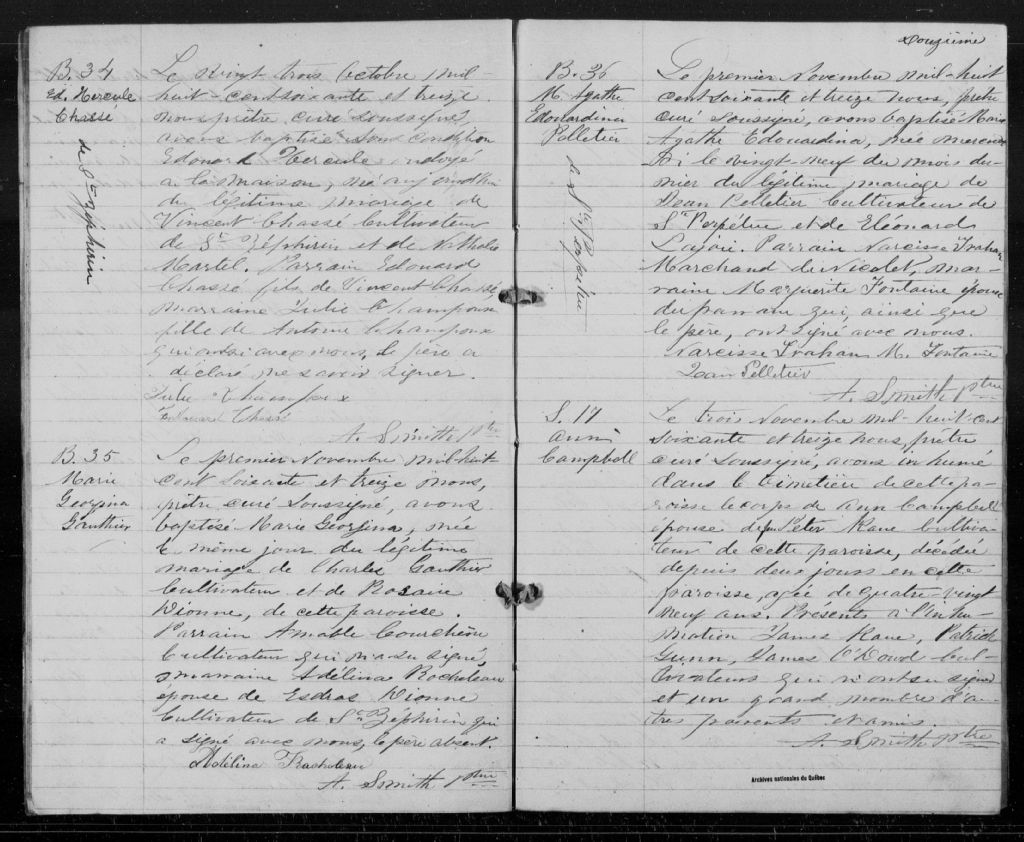 B. 34
Ed. Hercule
Chassé
de St Zéphirin
Le vingt trois Octobre mil-
huit-cent soixante et treize
nous prêtre curé soussigné,
avons baptisé sous condition
Edouard Hercule ondoyé
a la maison, né aujourd'hui
du légitime mariage de
Vincent Chassé Cultivateur
de St Zéphirin et de Nathalie
Martel. Parrain Edouard
Chassé fils de Vincent Chassé,
marraine Julie Champoux
fille de Antoine Champoux
qui ont avec nous, le père a
déclaré ne savoir signer.
Julie Champoux
Edouard Chassé
A. Smith ptre
B. 35
Marie
Georgina
Gauthier
Le premier Novembre mil huit-
cent soixante et treize nous,
prêtre curé soussigné, avons
baptisé Marie Georgina, née
le même jour du légitime
mariage de Charles Gauthier
Cultivateur et de Rosaire
Dionne, de cette paroisse.
Parrain Amable Courchêne
Cultivateur qui n'a su signé,
marraine Adélina Rocheleau
épouse de Esdras Dionne
Cultivateur de St Zéphirin qui
a signé avec nous, le père absent.
Adélina Rocheleau
A. Smith ptre
Douzième
B. 36
M. Agathe
Edouardina
Pelletier
de Ste Perpétue
Le premier Novembre mil-huit
cent soixante et treize nous, prêtre
curé soussigné, avons baptisé Marie
Agathe Edouardina, née mercre-
di le vingt-neuf du mois der-
nier du légitime mariage de
Jean Pelletier Cultivateur de
Ste Perpétue et de Eléonard
Lajoie. Parrain Narcisse Trahan
Marchand de Nicolet, mar-
raine Marguerite Fontaine épouse
du parrain qui, ainsi que
le père, ont signé avec nous.
Narcisse Trahan M. Fontaine
Jean Pelletier
A. Smith ptre
S. 17
Ann
Campbell
Le trois Novembre mil-huit-cent
soixante et treize nous, prêtre
curé soussigné, avons inhumé
dans le Cimetière de cette pa-
roisse le corps de Ann Campbell
épouse de feu Peter Kane Cultiva-
teur de cette paroisse, décédée
depuis deux jours en cette
paroisse, agée de quatre-vingt
neuf ans. Présents a l'inhu-
mation James Kane, Patrick
Gunn, James O'Dowd Cul-
tivateurs qui n'ont su signer
et un grand nombre d'au-
tres parents et amis.
A. Smith ptre
Archives nationales du Québec